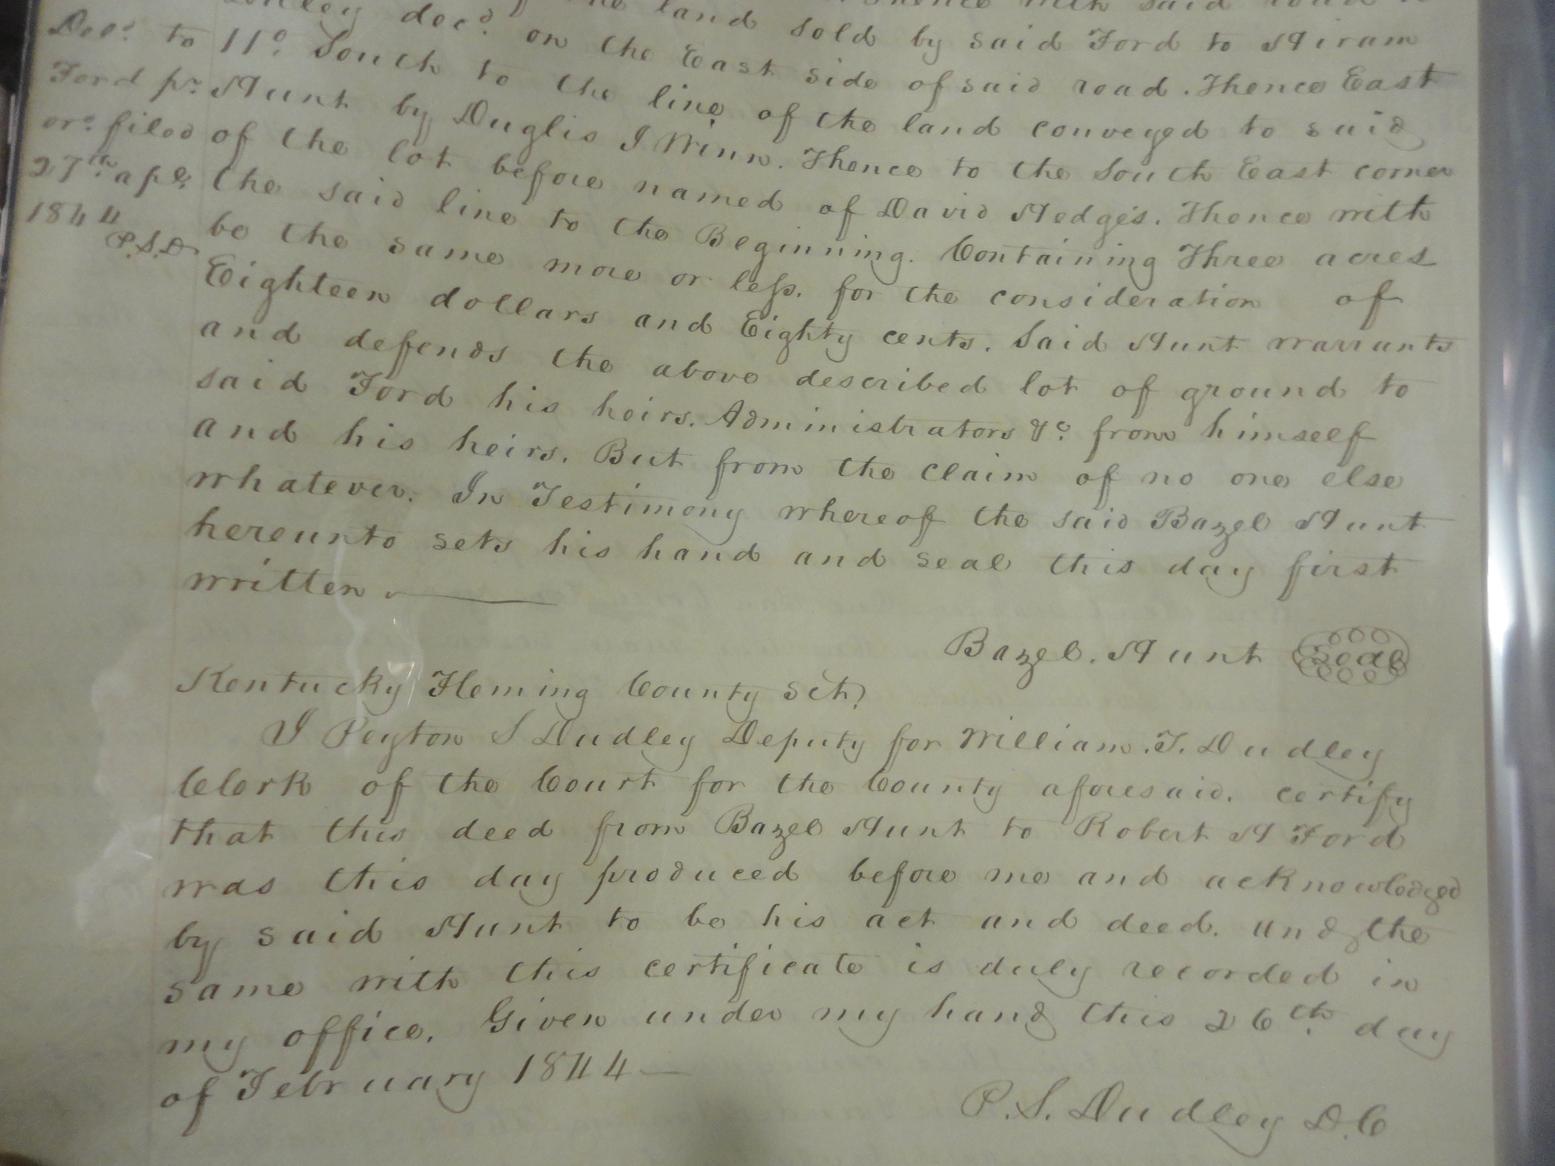 Del.d to
Ford pr.
or. filed
27th apl.
1844
P.S.D
dec.d the land sold by said Ford to Hiram
11.o South on the East side of said road. Thence East
Hunt to the line of the land conveyed to said
of the lot by Duglis J Winn. Thence to the South East corner
the said before named of David Hedges. Thence with
line to the Beginning. Containing Three acres
be the same more or less. for the consideration of
Eighteen dollars and Eighty cents. Said Hunt warrants
and defends the above described lot of ground to
said Ford his heirs. Administrators &c. from himself
and his heirs. But from the claim of no one else
whatever. In Testimony whereof the said Bazel Hunt
hereunto sets his hand and seal this day first
written
Bazel. Hunt Seal
Kentucky Fleming County Sct,
I Peyton S Dudley Deputy for William. T. Dudley
Clerk of the Court for the County aforesaid. certify
that this deed from Bazel Hunt to Robert H Ford
was this day produced before me and acknowledged
by said Hunt to be his act and deed. and the
same with this certificate is duly recorded in
my office. Given under my hand this 26th. day
of February 1844—
P. S. Dudley D.C